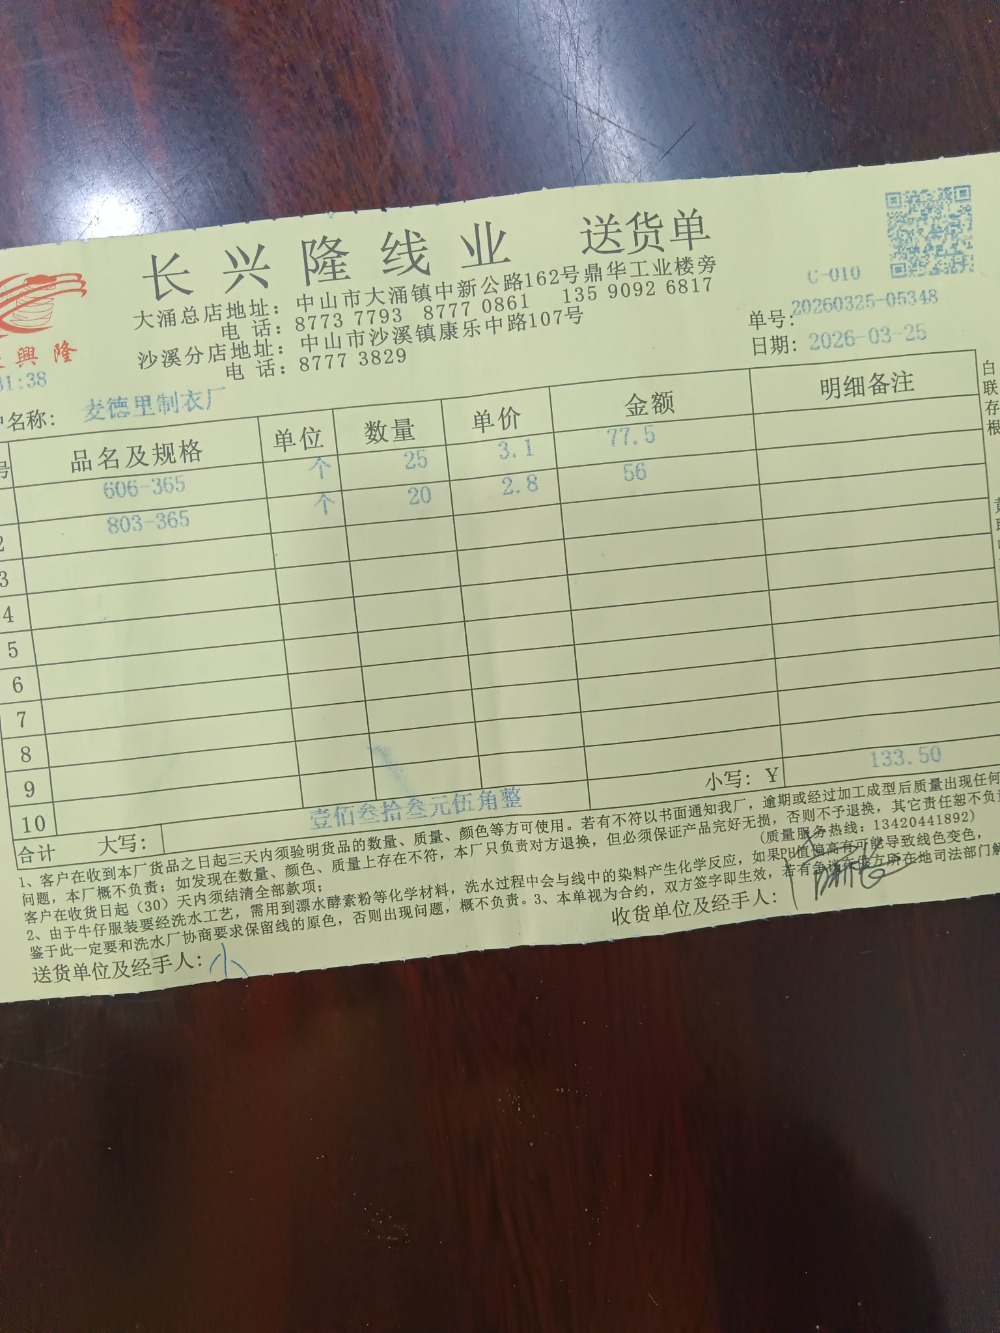 长兴隆线业 送货单
大涌总店地址：中山市大涌镇中新公路162号鼎华工业楼旁
电 话：8773 7793 8777 0861 135 9092 6817
沙溪分店地址：中山市沙溪镇康乐中路107号
电 话：8777 3829
興隆
31:38
C-010
单号：20260325-05348
日期：2026-03-25
户名称：麦德里制衣厂
号 品名及规格 单位 数量 单价 金额 明细备注
606-365 个 25 3.1 77.5
2 803-365 个 20 2.8 56
3
4
5
6
7
8
9
10
合计 大写：壹佰叁拾叁元伍角整 小写：￥ 133.50
白联存根
1、客户在收到本厂货品之日起三天内须验明货品的数量、质量、颜色等方可使用。若有不符以书面通知我厂，逾期或经过加工成型后质量出现任何
问题，本厂概不负责；如发现在数量、颜色、质量上存在不符，本厂只负责对方退换，但必须保证产品完好无损，否则不予退换，其它责任恕不负责
客户在收货日起（30）天内须结清全部款项；
（质量服务热线：13420441892）
2、由于牛仔服装要经洗水工艺，需用到漂水酵素粉等化学材料，洗水过程中会与线中的染料产生化学反应，如果PH值偏高有可能导致线色变色，
鉴于此一定要和洗水厂协商要求保留线的原色，否则出现问题，概不负责。3、本单视为合约，双方签字即生效，若有争议在供方所在地司法部门解
送货单位及经手人：小
收货单位及经手人：